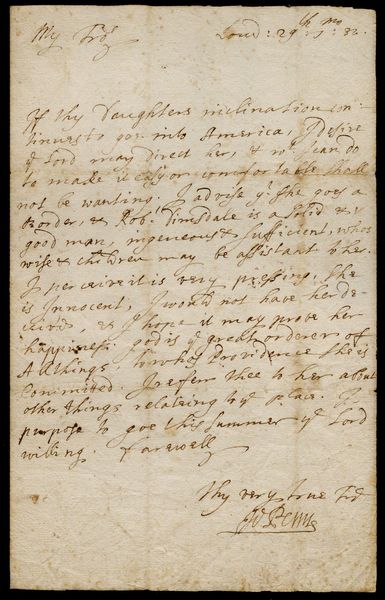 My Frd
Lond: 29th 5 mo 83.
If thy Daughters inclination con-
tinues to goe into America, I desire
ye Lord may direct her, & wt I can do
to made it easy or comfortable shall
not be wanting. I advise yt she goes a
border, & Robt Dimsdale is a solid &
good man, ingenious & sufficient, whos
wife & children may be assistant to her.
I perceive it is very pressing, she
is Innocent, I would not have her de-
ceived & I hope it may probe her
happiness. god is ye great orderer of
All things, to whos Providence she is
Committed. I refferr thee to her about
other things relateing to ye place. I
purpose to goe this summer ye Lord
willing. farewell
Thy very true Frd
Wm Penn